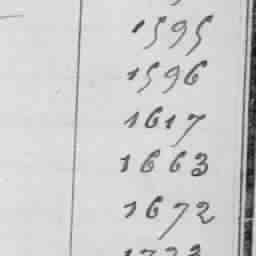 1595
1596
1617
1663
1672